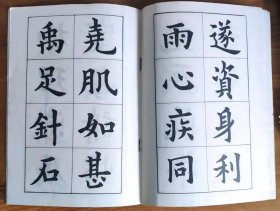 遂資身利
雨心疾同
堯肌如甚
禹足針石